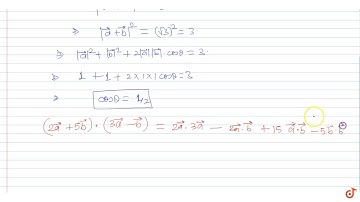 |a⃗+b⃗|² = (√3)² = 3
⇒ |a⃗|² + |b⃗|² + 2|a⃗||b⃗| cosθ = 3.
⇒ 1 + 1 + 2×1×1 cosθ = 3
⇒ cosθ = 1/2
(2a⃗ + 5b⃗) · (3a⃗ − b⃗) = 2a⃗·3a⃗ − 2a⃗·b⃗ + 15 a⃗·b⃗ − 5b⃗·b⃗